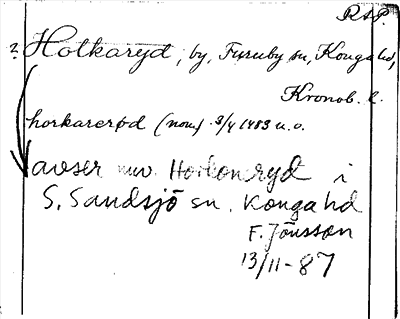 RSP.
? Hotkaryd, by, Furuby sn, Konga hd,
Kronob. l.
horkarerød (nom) 3/4 1483 u.o.
avser nuv. Horkonryd i
S. Sandsjö sn. Konga hd
F. Jönsson
13/11-87